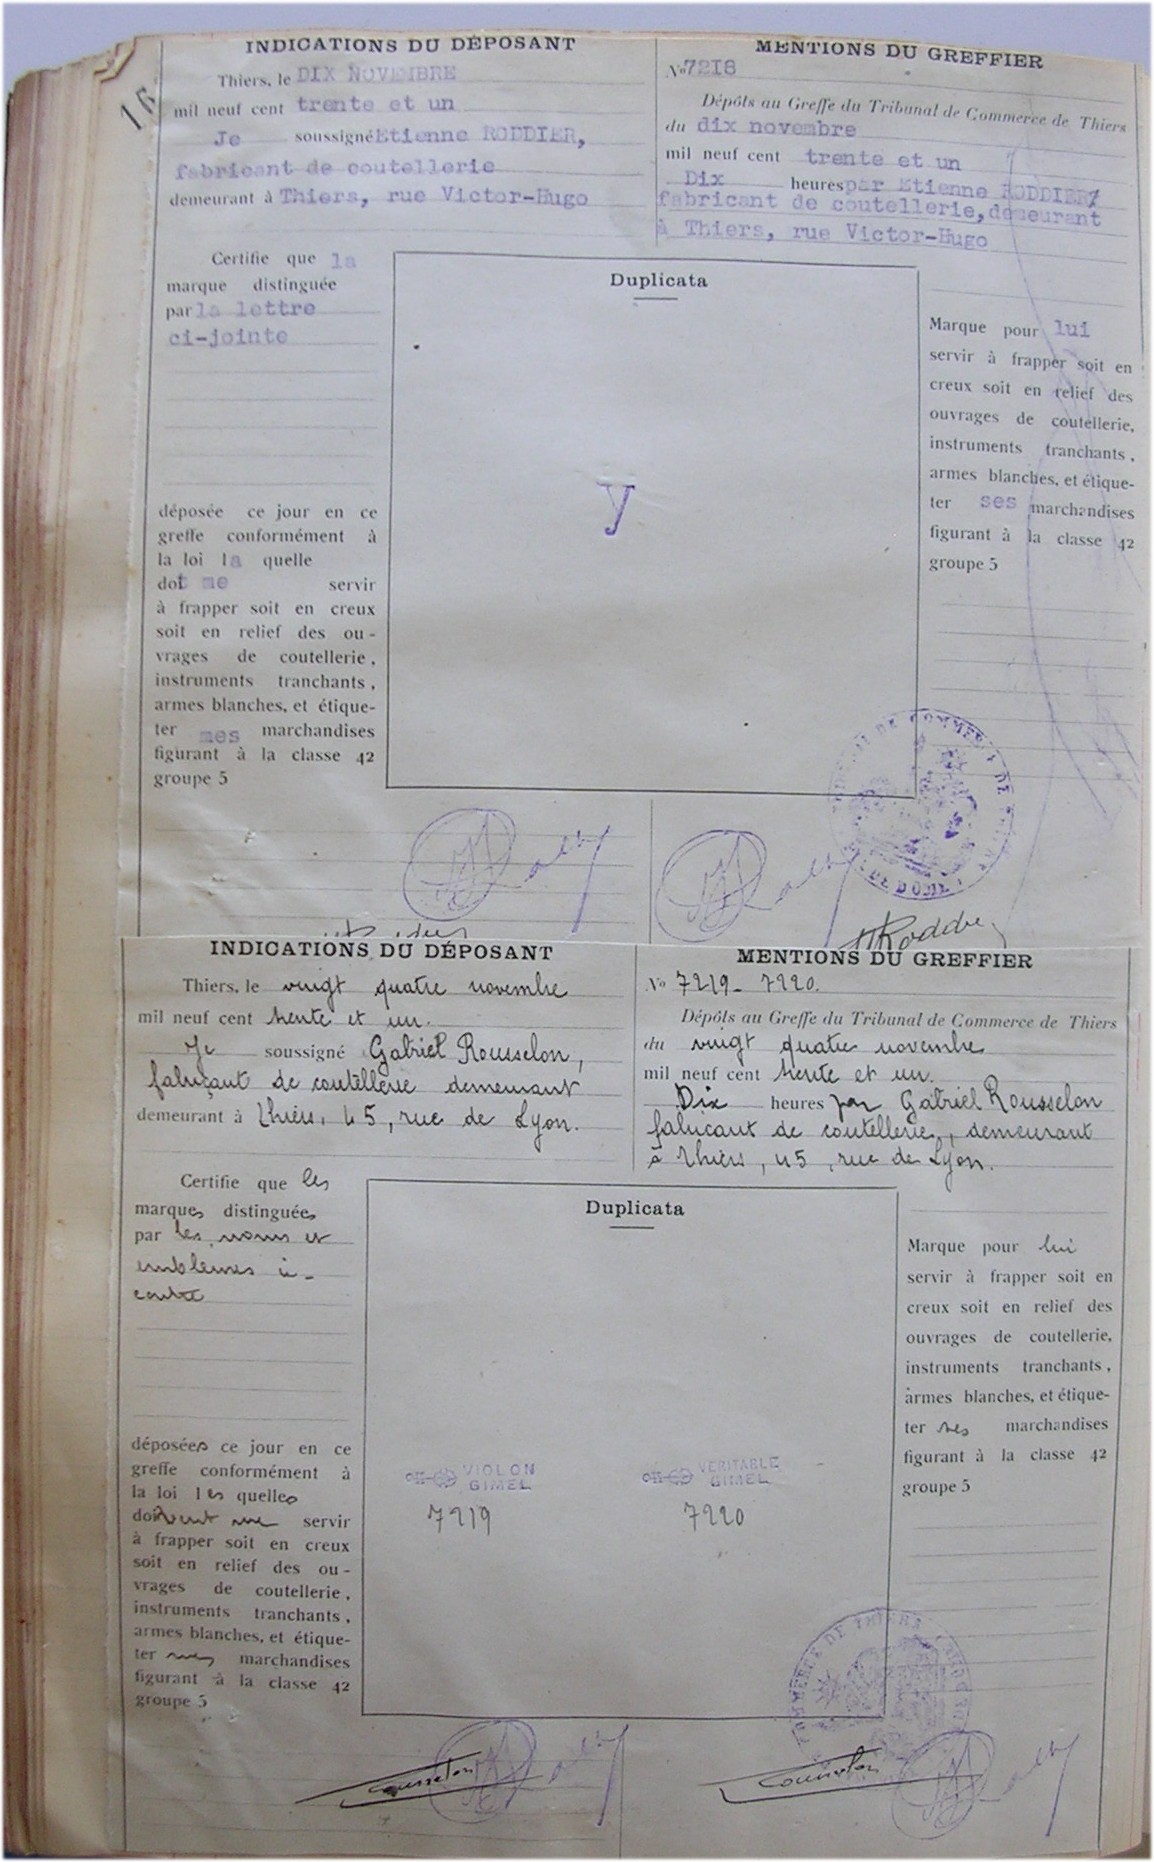 16
INDICATIONS DU DÉPOSANT
Thiers, le DIX NOVEMBRE
mil neuf cent trente et un
Je soussigné Etienne RODDIER,
fabricant de coutellerie
demeurant à Thiers, rue Victor-Hugo
MENTIONS DU GREFFIER
No 7218
Dépôts au Greffe du Tribunal de Commerce de Thiers
du dix novembre
mil neuf cent trente et un
Dix heures par Etienne RODDIER,
fabricant de coutellerie, demeurant
à Thiers, rue Victor-Hugo
Certifie que la
marque distinguée
par la lettre
ci-jointe
déposée ce jour en ce
greffe conformément à
la loi la quelle
dot me servir
à frapper soit en creux
soit en relief des ou-
vrages de coutellerie,
instruments tranchants,
armes blanches, et étique-
ter mes marchandises
figurant à la classe 42
groupe 5
Duplicata
y
Marque pour lui
servir à frapper soit en
creux soit en relief des
ouvrages de coutellerie,
instruments tranchants,
armes blanches, et étique-
ter ses marchandises
figurant à la classe 42
groupe 5
INDICATIONS DU DÉPOSANT
Thiers, le vingt quatre novembre
mil neuf cent trente et un.
Je soussigné Gabriel Rousselon,
fabricant de coutellerie demeurant
demeurant à Thiers, 45, rue de Lyon.
MENTIONS DU GREFFIER
No 7219 - 7220.
Dépôts au Greffe du Tribunal de Commerce de Thiers
du vingt quatre novembre
mil neuf cent trente et un.
Dix heures par Gabriel Rousselon
fabricant de coutellerie, demeurant
à Thiers, 45, rue de Lyon.
Certifie que les
marques distinguées
par les noms et
emblemes ci-
contre
déposées ce jour en ce
greffe conformément à
la loi les quelles
doivent me servir
à frapper soit en creux
soit en relief des ou-
vrages de coutellerie,
instruments tranchants,
armes blanches, et étique-
ter mes marchandises
figurant à la classe 42
groupe 5
Duplicata
VIOLON
GIMEL
7219
VERITABLE
GIMEL
7220
Marque pour lui
servir à frapper soit en
creux soit en relief des
ouvrages de coutellerie,
instruments tranchants,
armes blanches, et étique-
ter ses marchandises
figurant à la classe 42
groupe 5
Rousselon
Rousselon